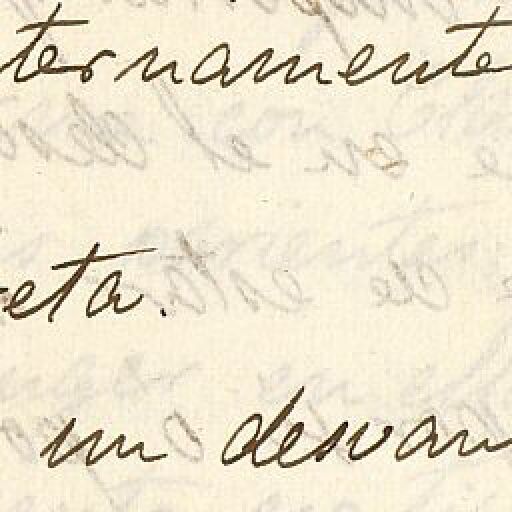 ternamente
eta.
un desvan